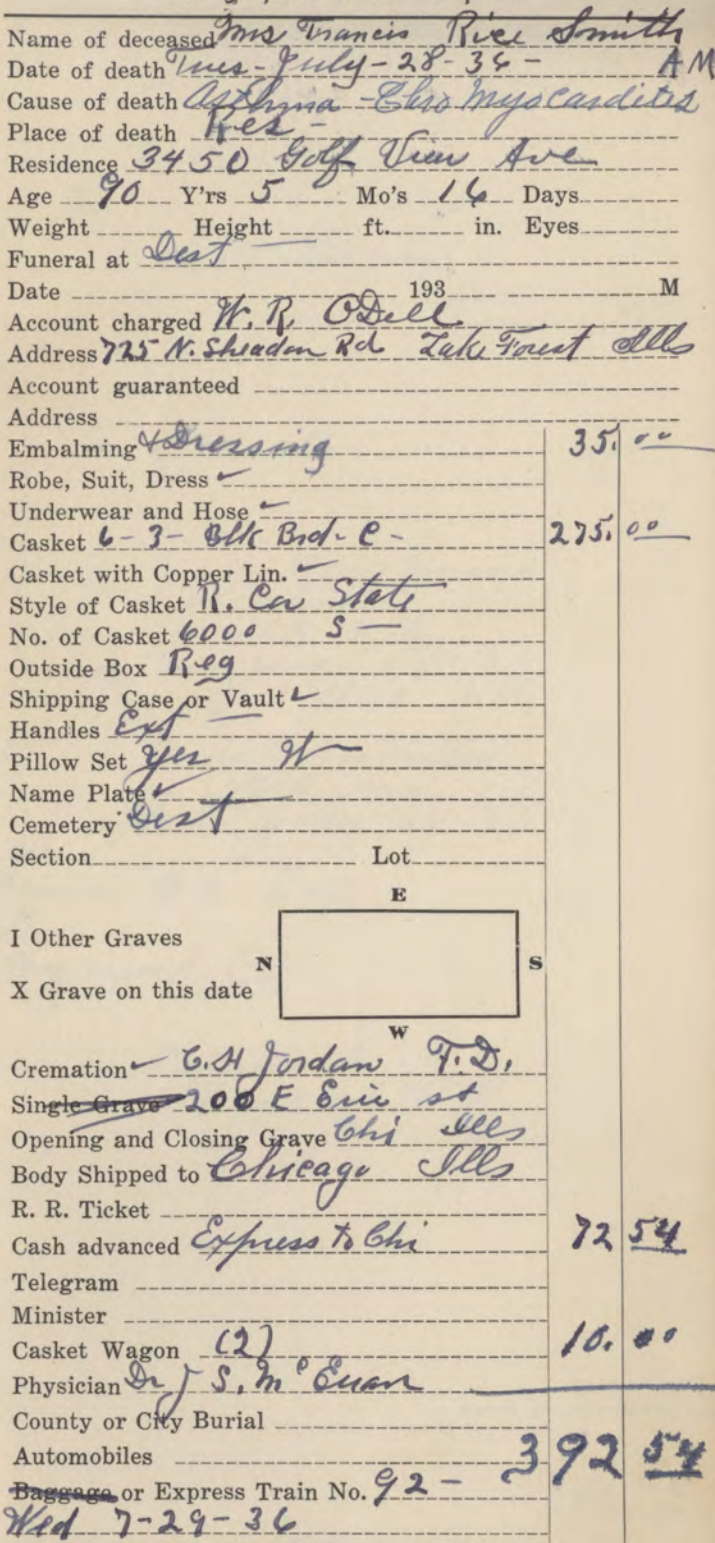 Name of deceased Mrs Francis Rice Smith
Date of death Tues - July - 28 - 36 - AM
Cause of death Asthma - Chro Myocardites
Place of death Res -
Residence 3450 Golf View Ave
Age 90 Y'rs 5 Mo's 16 Days
Weight Height ft. in. Eyes
Funeral at Dest
Date 193 M
Account charged W. R. O'Dell
Address 725 N. Sheadon Rd Lake Forest Ills
Account guaranteed
Address
Embalming & Dressing 35. 00
Robe, Suit, Dress
Underwear and Hose
Casket 6-3- Blk Brd - C - 275. 00
Casket with Copper Lin.
Style of Casket R. Cor State
No. of Casket 6000 S
Outside Box Reg
Shipping Case or Vault
Handles Ext
Pillow Set Yes W
Name Plate
Cemetery Dest
Section Lot
E
I Other Graves
N S
X Grave on this date
W
Cremation C. H Jordan F. D.
Single Grave 200 E Erie st
Opening and Closing Grave Chi Ills
Body Shipped to Chicago Ills
R. R. Ticket
Cash advanced Express to Chi 72 54
Telegram
Minister
Casket Wagon (2) 10. 00
Physician Dr J S. McEuan
County or City Burial
Automobiles 392 54
Baggage or Express Train No. 92 -
Wed 7-29-36